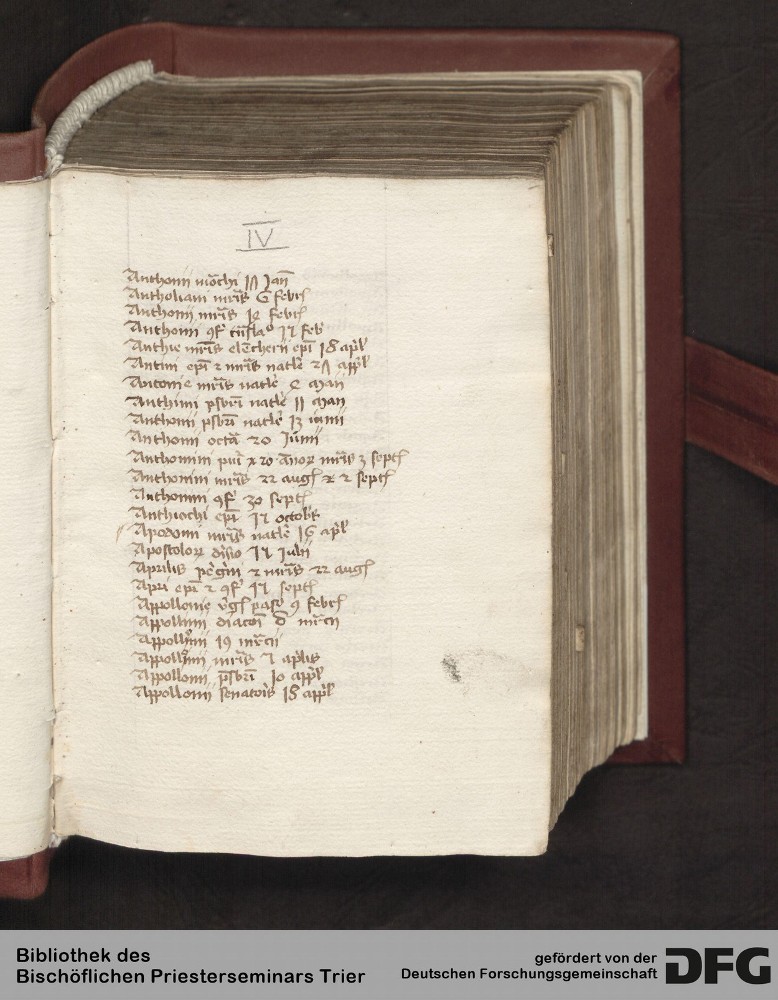 IV
Anthonii mōchi 17 Jan̄
Antholiani mr̄is 6 febrʒ
Anthonii mr̄is 14 febrʒ
Anthonii ꝯf 17 feb
Anthie mr̄is eleutherii ep̄i 18 ap̄l
Antimi ep̄i ⁊ mr̄is natl̄e 27 app̄l
Antonie mr̄is natl̄e 4 Maii
Anthimi p̄sbr̄i natl̄e 11 Maii
Anthonii p̄sbr̄i natl̄e 13 iunii
Anthonii octā 20 Junii
Anthonini mr̄is 3 septʒ
Anthonini mr̄is 22 augʒ ⁊ 2 septʒ
Anthonini ꝯf 30 septʒ
Anthiochi ep̄i 17 octobr̄
Apodomi mr̄is natl̄e 16 ap̄l
Apostoloꝝ diuisio 17 Julii
Aprilis ⁊ mr̄is 22 augʒ
Apri ep̄i ⁊ ꝯf 17 septʒ
Appollonie v̄gʒ 9 febrʒ
Appollinii diacoī mr̄cii
Appollonii 19 mr̄cii
Appollonii mr̄is 7 ap̄lis
Appollonii p̄sbr̄i 10 app̄l
Appollonii senatoris 18 app̄l
Bibliothek des
Bischöflichen Priesterseminars Trier
gefördert von der
Deutschen Forschungsgemeinschaft
DFG